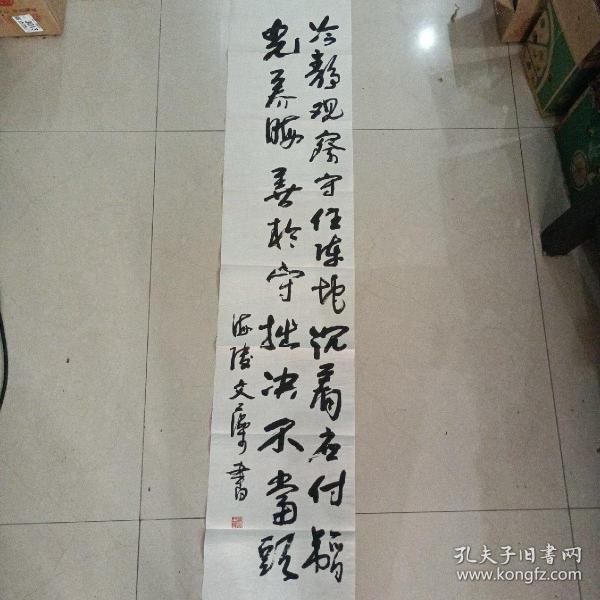 冷静观察守住陣地沉着应付韜
光养晦善於守拙决不當頭
海陵文 書
孔夫子旧书网
www.kongfz.com